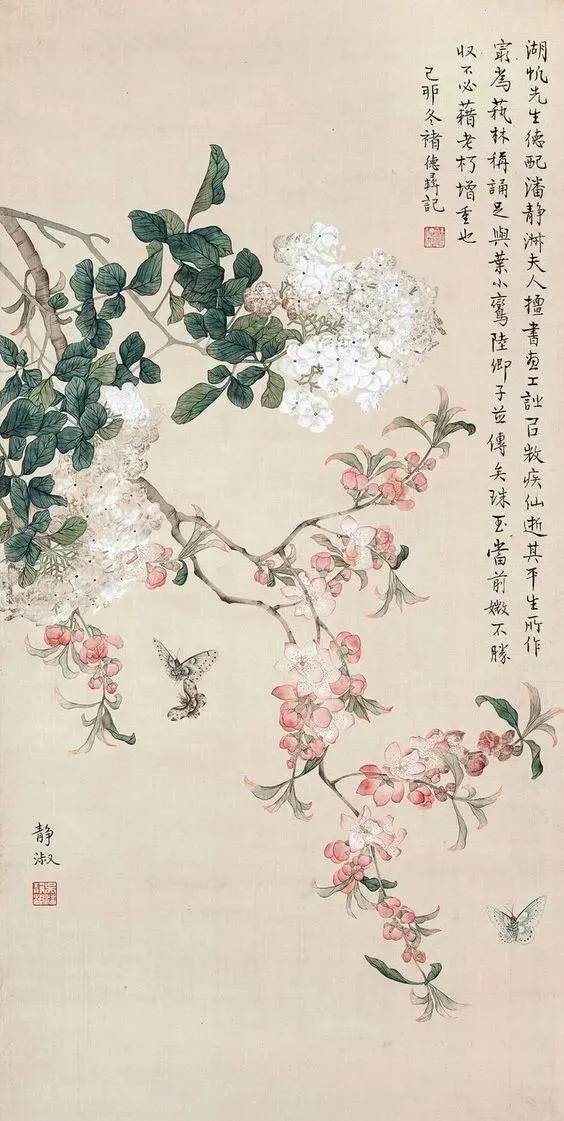 湖帆先生德配潘静淑夫人擅書畫工詞㠯微疾仙逝其平生所作
為萟林稱誦足與葉小鸞陸卿子並傳矣珠玉當前媺不勝
収不必藉老朽增重也
己卯冬褚德彝記
静
淑